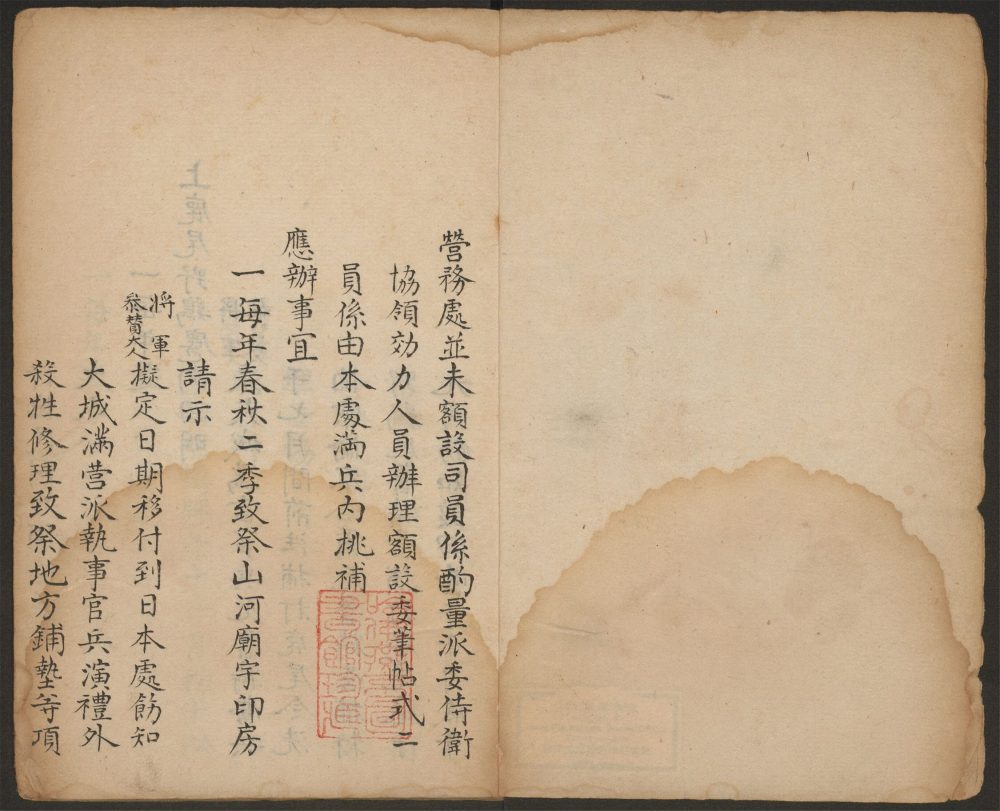 營務處並未額設司員係酌量派委侍衛
協領効力人員辦理額設委筆帖式二
員係由本處滿兵內挑補
應辦事宜
一每年春秋二季致祭山河廟宇印房
請示
將軍
叅贊大人擬定日期移付到日本處飭知
大城滿营派執事官兵演禮外
殺牲修理致祭地方鋪墊等項